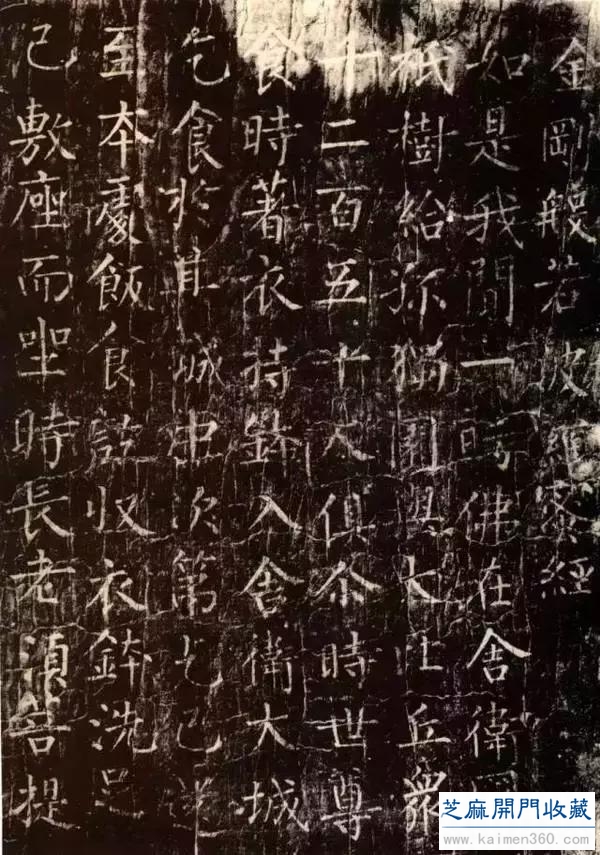 金剛般若波羅蜜經
如是我聞一時佛在舍衛國
祇樹給孤獨園與大比丘眾
千二百五十人俱尒時世尊
食時著衣持鉢入舍衛大城
乞食於其城中次第乞已還
至本處飯食訖收衣鉢洗足
已敷座而坐時長老須菩提
芝麻開門收藏
www.kaimen360.com